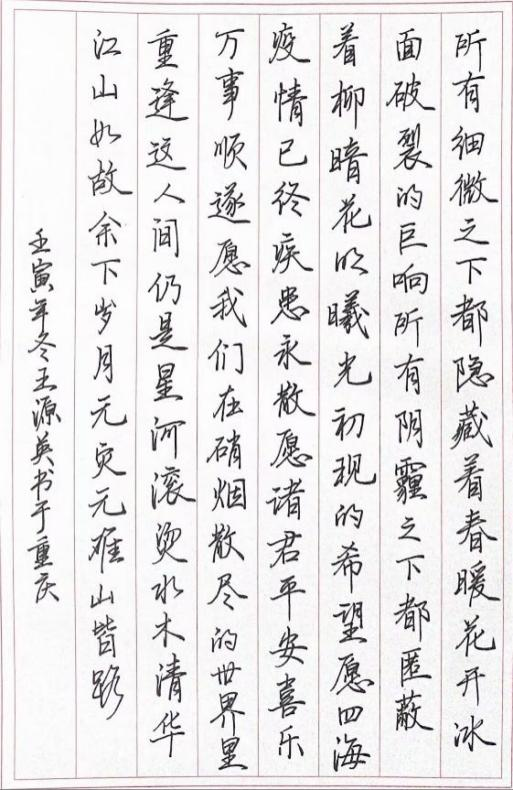 所有细微之下都隐藏着春暖花开冰
面破裂的巨响所有阴霾之下都匿蔽
着柳暗花明曦光初现的希望愿四海
疫情已终疾患永散愿诸君平安喜乐
万事顺遂愿我们在硝烟散尽的世界里
重逢这人间仍是星河滚烫水木清华
江山如故余下岁月无灾无难山皆路
壬寅年冬王源英书于重庆